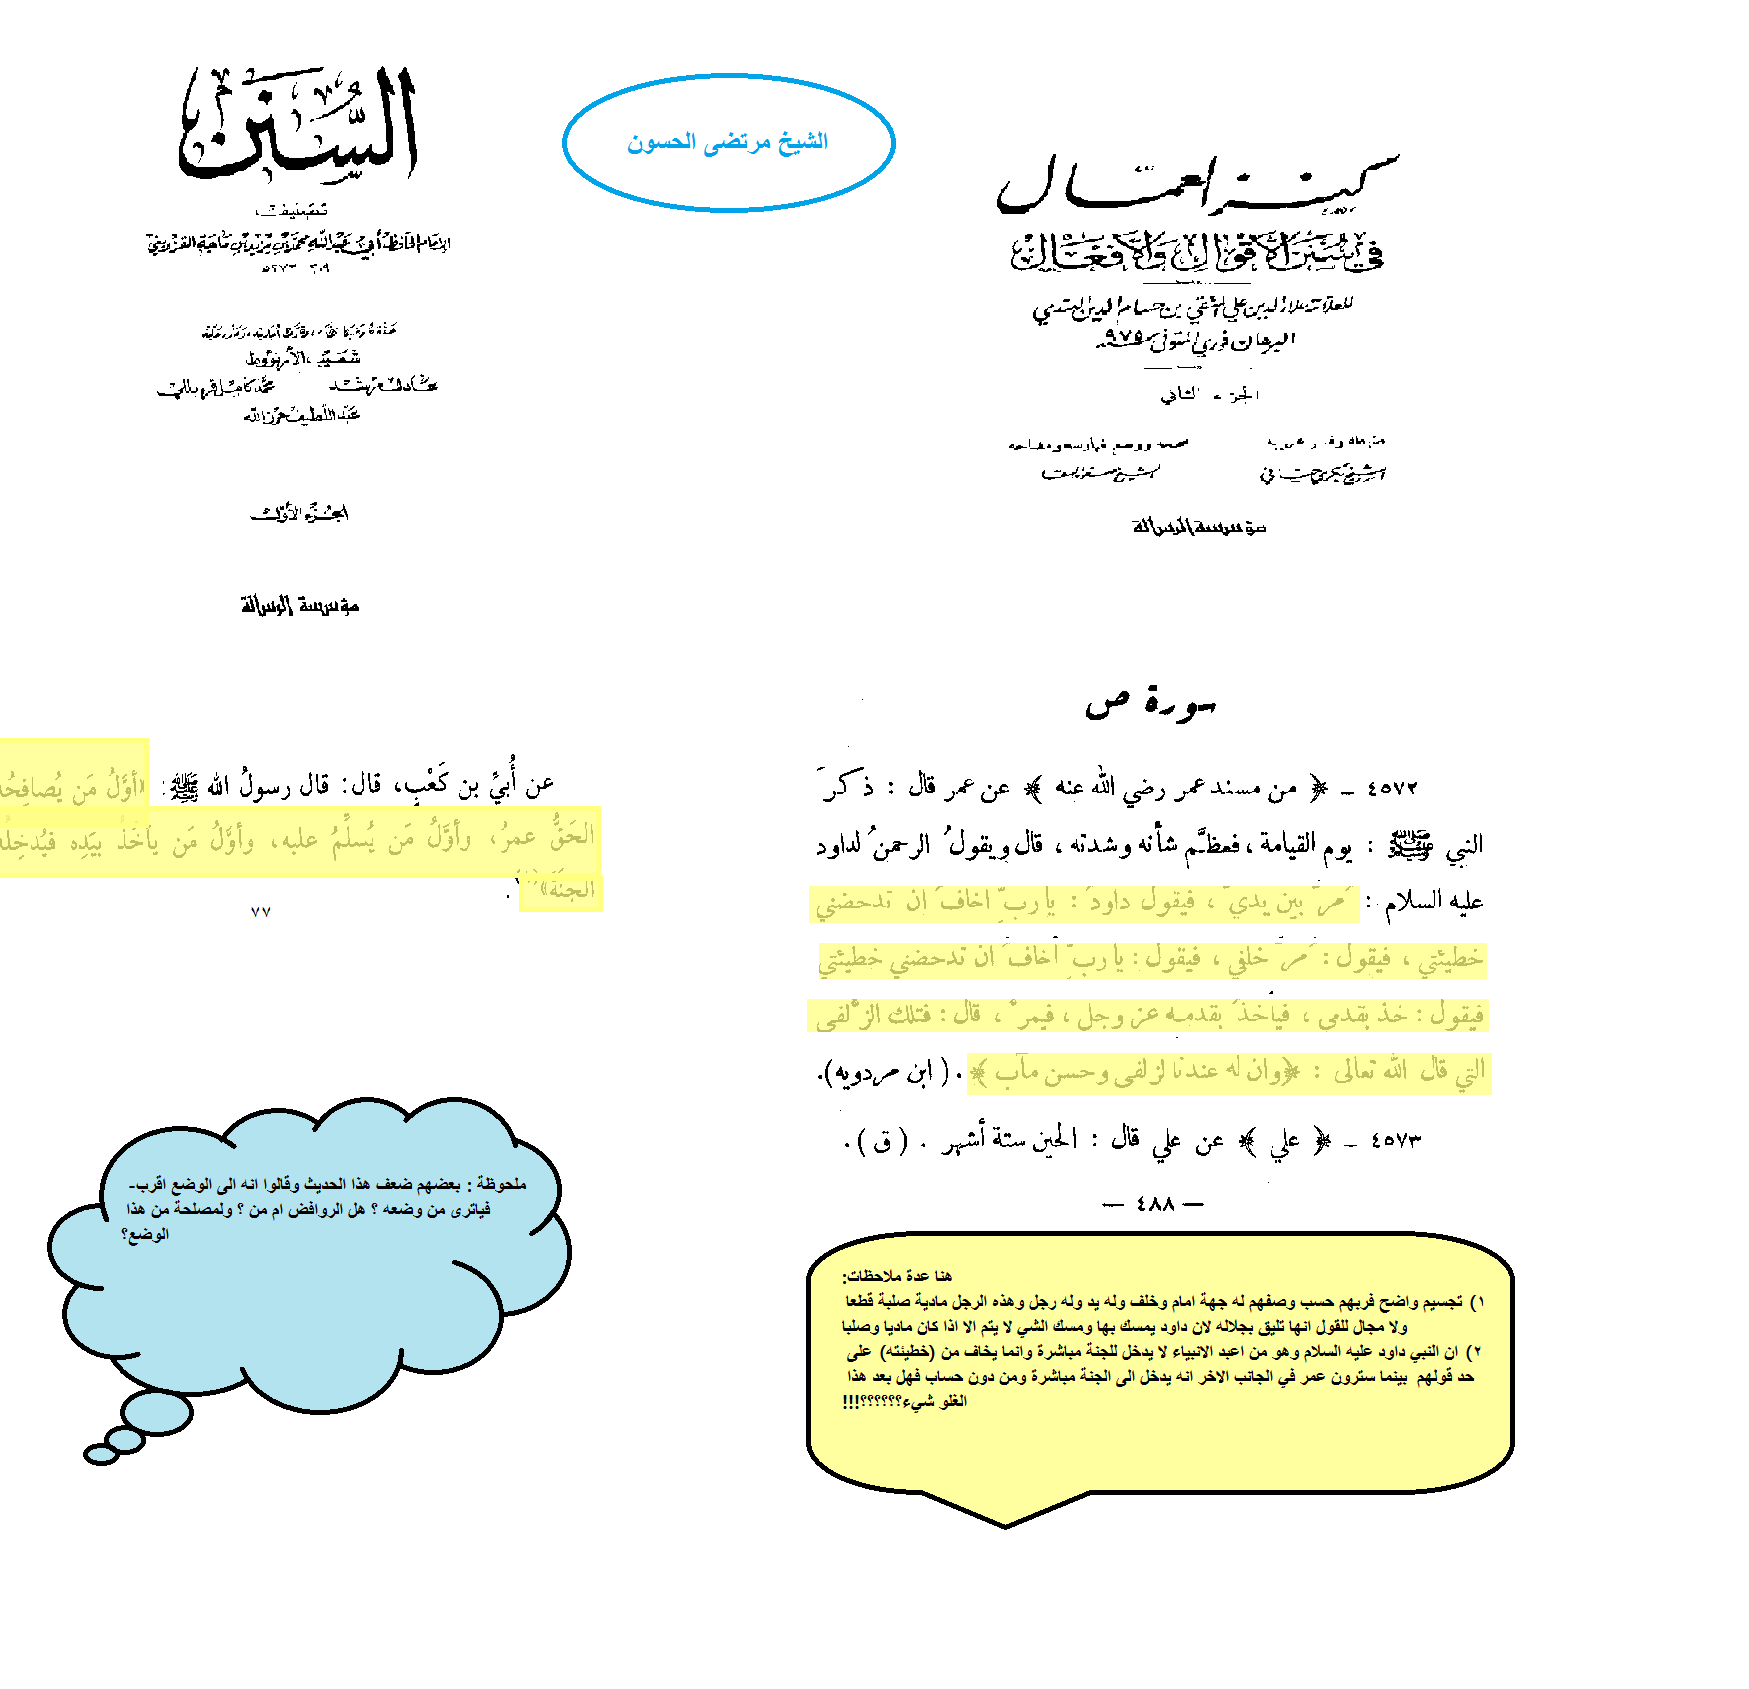 الشيخ مرتضى الحسون
كنز العمال
في سنن الأقوال والأفعال
للعلامة علاء الدين علي المتقي بن حسام الدين الهندي
البرهان فوري المتوفى ٩٧٥
الجزء الثاني
الشيخ بكري حياني
الشيخ صفوة السقا
مؤسسة الرسالة
سورة ص
٤٥٧٢ – ﴿ من مسند عمر رضي الله عنه ﴾ عن عمر قال : ذكرَ
النبي ﷺ : يوم القيامة ، فعظَّم شأنه وشدته ، قال ويقولُ الرحمنُ لداود
عليه السلام : مرَّ بين يديَّ ، فيقول داودَ : يا ربِّ اخافَ ان تدحضني
خطيئتي ، فيقول : مرَّ خلفي ، فيقول : يا ربِّ أخافَ ان تدحضني خطيئتي
فيقول : خذ بقدمي ، فيأخذَ بقدمه عز وجل ، فيمرْ ، قال : فتلك الزلفى
التي قال الله تعالى : ﴿وان له عندنا لزلفى وحسن مآب﴾ . ( ابن مردويه).
٤٥٧٣ – ﴿ علي ﴾ عن علي قال : الحين ستة أشهر . ( ق ) .
— ٤٨٨ —
هنا عدة ملاحظات:
١) تجسيم واضح فربهم حسب وصفهم له جهة امام وخلف وله يد وله رجل وهذه الرجل مادية صلبة قطعا
ولا مجال للقول انها تليق بجلاله لان داود يمسك بها ومسك الشي لا يتم الا اذا كان ماديا وصلبا
٢) ان النبي داود عليه السلام وهو من اعبد الانبياء لا يدخل للجنة مباشرة وانما يخاف من (خطيئته) على
حد قولهم بينما سترون عمر في الجانب الاخر انه يدخل الى الجنة مباشرة ومن دون حساب فهل بعد هذا
الغلو شيء؟؟؟؟؟؟!!!
السنن
تصنيف
الإمام الحافظ أبي عبد الله محمد بن يزيد بن ماجة القزويني
٢٠٩ ٢٧٣ه
شعيب الأرنؤوط
عادل مرشد
محمد كامل قره بللي
عبد اللطيف حرز الله
الجزء الأول
مؤسسة الرسالة
عن أُبيِّ بن كَعْبٍ، قال: قال رسولُ الله ﷺ: «أوَّلُ مَن يُصافِحُه
الحَقُّ عمرُ، وأوَّلُ مَن يُسلِّمُ عليه، وأوَّلُ مَن يأخُذُ بيَدِه فيُدخِلُه
الجنةَ» .
٧٧
ملحوظة : بعضهم ضعف هذا الحديث وقالوا انه الى الوضع اقرب-
فياترى من وضعه ؟ هل الروافض ام من ؟ ولمصلحة من هذا
الوضع؟